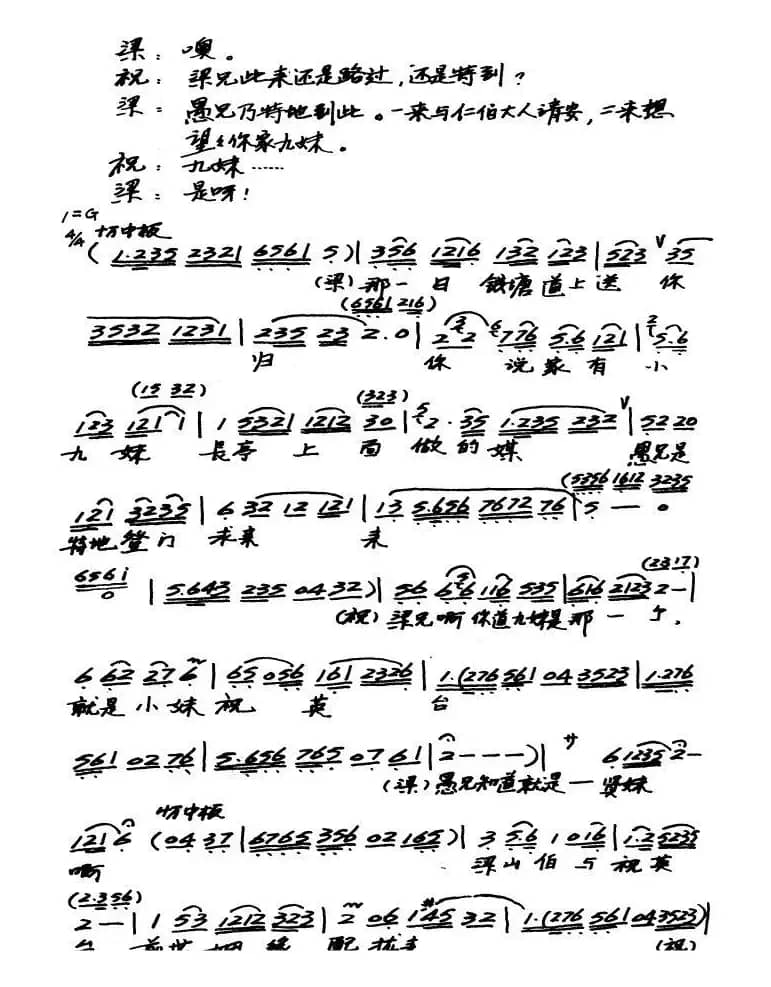 梁：噢。
祝：梁兄此来还是路过，还是特到？
梁：愚兄乃特地到此。一来与仁伯大人请安，二来想
望望你家九妹。
祝：九妹……
梁：是呀！
1=G
4/4 切中板
(1.235 2321 6561 5)| 356 1216 132 123 | 523 V 35
(梁)那一日 钱塘道上送 你
(6561 216)
3532 1231 | 235 23 2.0 | 2 2 776 5.6 121 | 5.6
归 你 说家有小
(15 32) (323)
123 121 1 | 1 5321 1212 30 | 2. 35 1.235 232 V | 52 20
九妹 长亭上面做的媒 愚兄是
(5356 1612 3235
121 3235 | 6 32 12 121 | 13 5.656 7672 76 | 5 — 0
特地登门求亲 来
6561
0 | 5.643 235 04 32) | 56 66 116 535 | 616 2123 2 - |
(2317)
(祝)梁兄啊你道九妹是那一个，
6 62 27 6 | 65 056 161 2326 | 1.(276 561 04 3523 | 1.276
就是小妹祝英台
561 02 76 | 5.656 765 07 61 | 2 - - - ) | サ 6 1235 2 -
(梁)愚兄知道就是一贤妹
切中板
121 6 (04 37 | 6765 356 02 165) | 3 5.6 1 016 | 1.2 5235
啊 梁山伯与祝英
(2.356)
2 — | 1 53 1212 323 | 2 06 145 32 | 1.(276 561 043523) |
台
(祝)